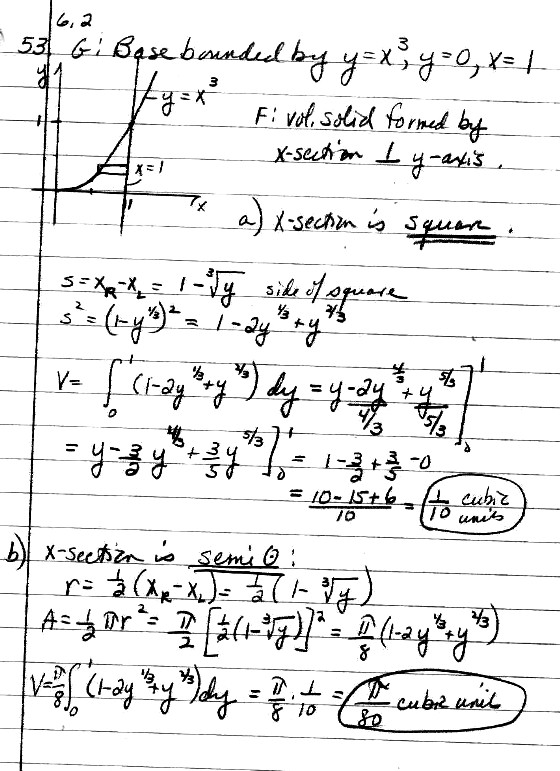 6.2
53. G: Base bounded by y = x³, y = 0, x = 1
y
y = x³
1
x = 1
1
x
F: vol. solid formed by
x-section ⊥ y-axis.
a) x-section is square.
s = x_R - x_L = 1 - ∛y side of square
s² = (1 - y^(1/3))² = 1 - 2y^(1/3) + y^(2/3)
V = ∫₀¹ (1 - 2y^(1/3) + y^(2/3)) dy = y - 2y^(4/3)/(4/3) + y^(5/3)/(5/3) ]₀¹
= y - 3/2 y^(4/3) + 3/5 y^(5/3) ]₀¹ = 1 - 3/2 + 3/5 - 0
= (10 - 15 + 6)/10 = 1/10 cubic units
b) x-section is semi ⊙:
r = 1/2 (x_R - x_L) = 1/2 (1 - ∛y)
A = 1/2 πr² = π/2 [1/2 (1 - ∛y)]² = π/8 (1 - 2y^(1/3) + y^(2/3))
V = π/8 ∫₀¹ (1 - 2y^(1/3) + y^(2/3)) dy = π/8 · 1/10 = π/80 cubic units